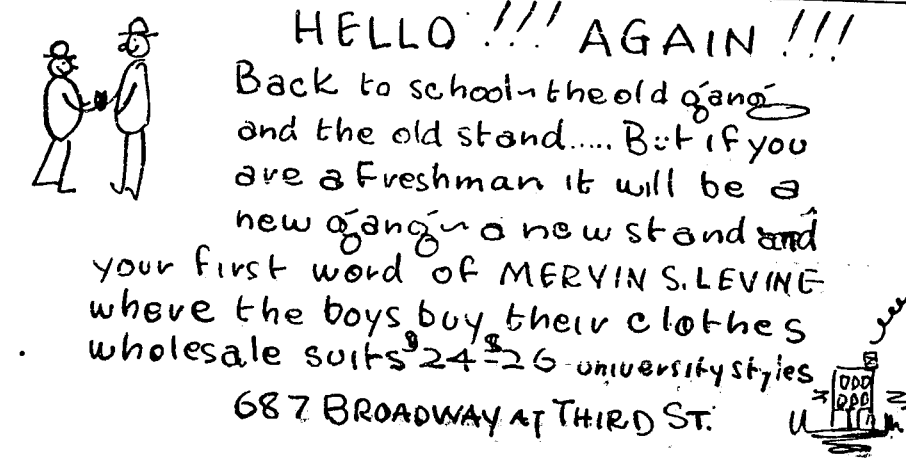 HELLO !!! AGAIN !!!
Back to school~the old gang
and the old stand..... But if you
are a Freshman it will be a
new gang~a new stand and
your first word of MERVIN S. LEVINE
where the boys buy their clothes
wholesale suits $24-$26-university styles
687 BROADWAY AT THIRD ST.